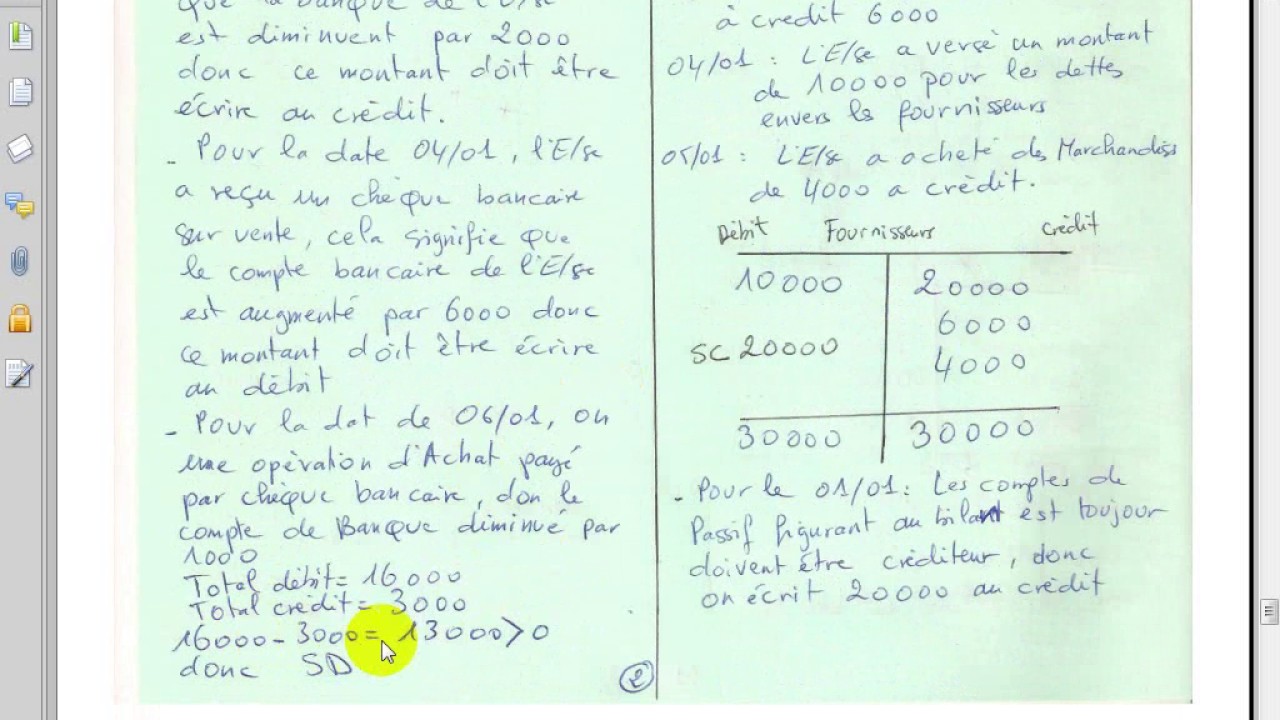 que la banque de l'E/se
est diminuent par 2000
donc ce montant doit être
écrire au crèdit.
- Pour la date 04/01, l'E/se
a reçu un chèque bancaire
sur vente, cela signifie que
le compte bancaire de l'E/se
est augmenté par 6000 donc
ce montant doit être écrire
au dèbit
- Pour la dat de 06/01, on
une opèration d'Achat payé
par chèque bancaire, don le
compte de Banque diminué par
1000
Total dèbit= 16000
Total crèdit= 3000
16000 - 3000 = 13000 > 0
donc SD
2
à credit 6000
04/01 : L'E/se a versé un montant
de 10000 pour les dettes
envers le fournisseurs
05/01 : L'E/se a acheté des Marchandises
de 4000 a crèdit.
Dèbit Fournisseurs Crèdit
10000 20000
6000
SC 20000 4000
30000 30000
- Pour le 01/01 : Les comptes de
Passif figurant au bilant est toujour
doivent être crèditeur, donc
on écrit 20000 au crèdit